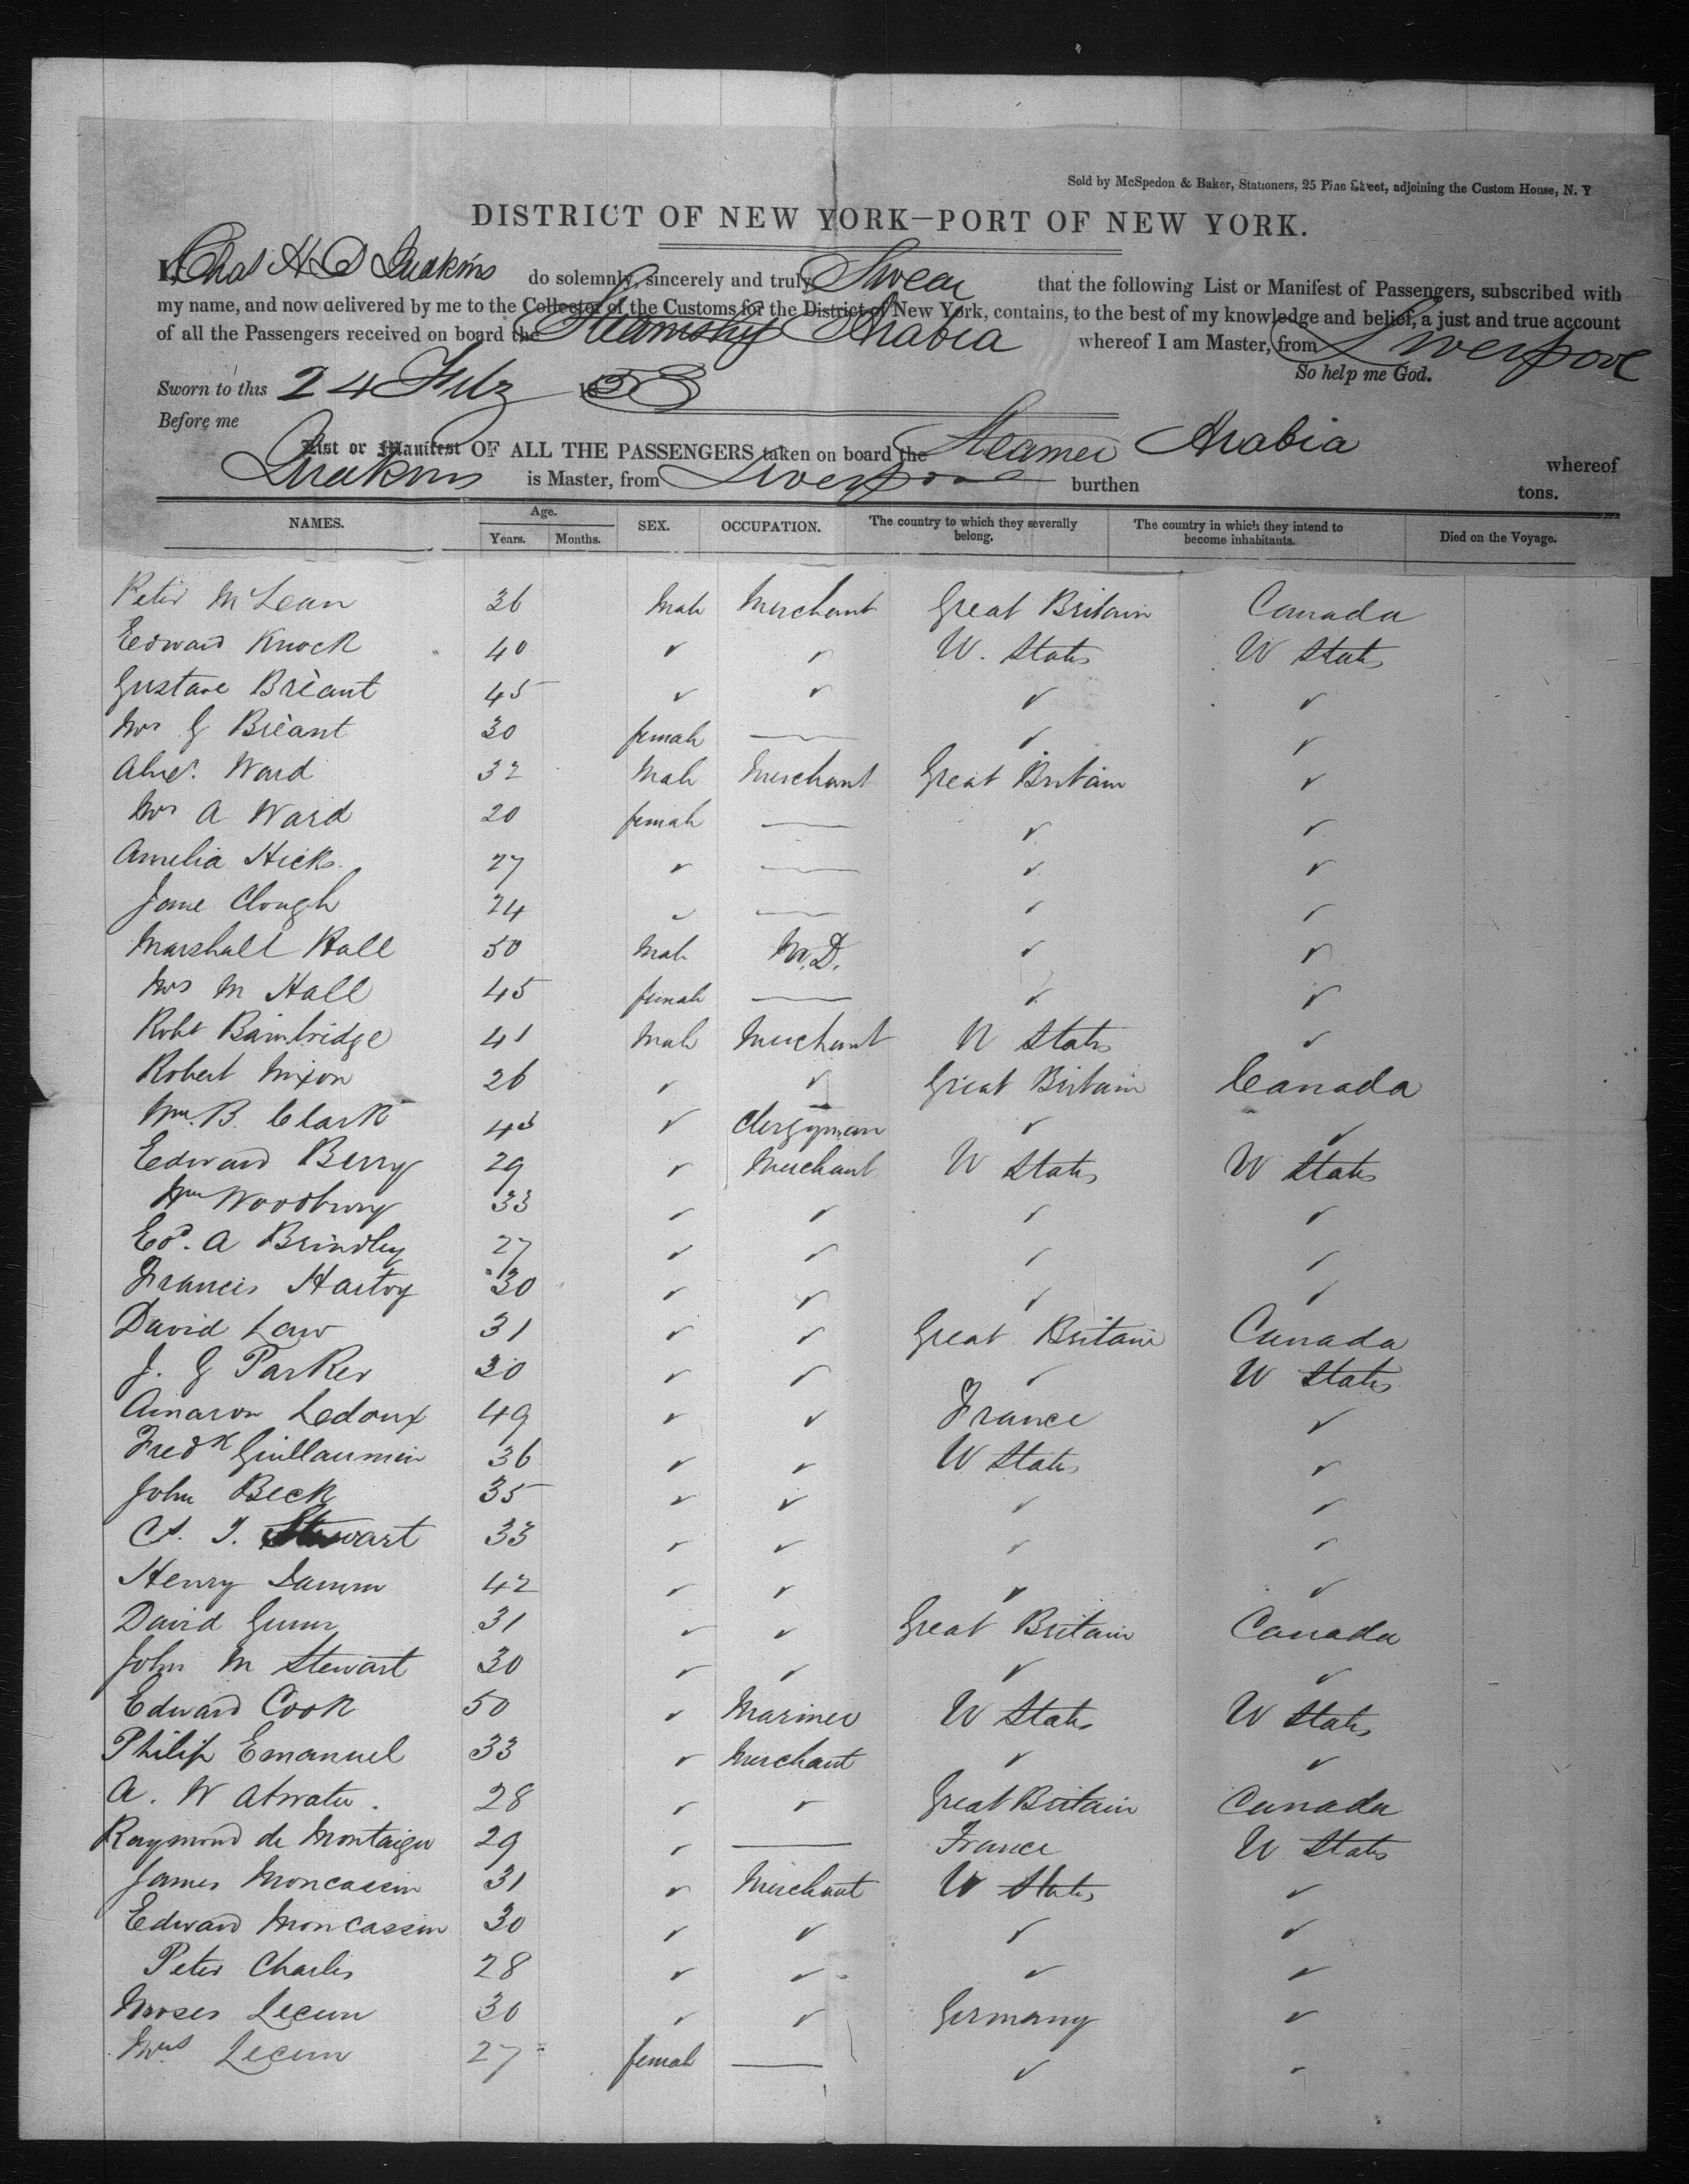 Sold by McSpedon & Baker, Stationers, 25 Pine Street, adjoining the Custom House, N. Y
DISTRICT OF NEW YORK—PORT OF NEW YORK.
I, Chas H D Judkins do solemnly, sincerely and truly Swear that the following List or Manifest of Passengers, subscribed with
my name, and now delivered by me to the Collector of the Customs for the District of New York, contains, to the best of my knowledge and belief, a just and true account
of all the Passengers received on board the Steamship Arabia whereof I am Master, from Liverpool
So help me God.
Sworn to this 24 Feb 1853
Before me
List or Manifest OF ALL THE PASSENGERS taken on board the Steamer Arabia whereof
Judkins is Master, from Liverpool burthen tons.
NAMES. Age. Years. Months. SEX. OCCUPATION. The country to which they severally belong. The country in which they intend to become inhabitants. Died on the Voyage.
Peter McLean 36 Male Merchant Great Britain Canada
Edward Knock 40 ✓ ✓ U. States U States
Gustave Brèant 45 ✓ ✓ ✓ ✓
Mrs G Brèant 30 female — ✓ ✓
Ward 32 Male Merchant Great Britain ✓
Mrs A Ward 20 female — ✓ ✓
Amelia Hicks 27 ✓ — ✓ ✓
Jane Clough 24 ✓ — ✓ ✓
Marshall Hall 50 Male M.D. ✓ ✓
Mrs M Hall 45 female — ✓ ✓
Robt Bainbridge 41 Male Merchant U States ✓
Robert Nixon 26 ✓ ✓ Great Britain Canada
Wm. B. Clark 43 ✓ Clergyman ✓ ✓
Edward Berry 29 ✓ Merchant U States U States
Wm Woodbury 33 ✓ ✓ ✓ ✓
Ed. A Brindley 27 ✓ ✓ ✓ ✓
Francis Hartoy 30 ✓ ✓ ✓ ✓
David Law 31 ✓ ✓ Great Britain Canada
J. G Parker 30 ✓ ✓ ✓ U States
Amaron Ledoux 49 ✓ ✓ France ✓
Fredk Guillaumin 36 ✓ ✓ U States ✓
John Beck 35 ✓ ✓ ✓ ✓
A. T. Stewart 33 ✓ ✓ ✓ ✓
Henry Damm 42 ✓ ✓ ✓ ✓
David Gunn 31 ✓ ✓ Great Britain Canada
John M Stewart 30 ✓ ✓ ✓ ✓
Edward Cook 50 ✓ Mariner U States U States
Philip Emanuel 33 ✓ Merchant ✓ ✓
A. W Atwater. 28 ✓ ✓ Great Britain Canada
Raymond de Montaigu 29 ✓ — France U States
James Moncassin 31 ✓ Merchant U States ✓
Edward Moncassin 30 ✓ ✓ ✓ ✓
Peter Charles 28 ✓ ✓ ✓ ✓
Moses Lecum 30 ✓ ✓ Germany ✓
Mrs Lecum 27 female — ✓ ✓